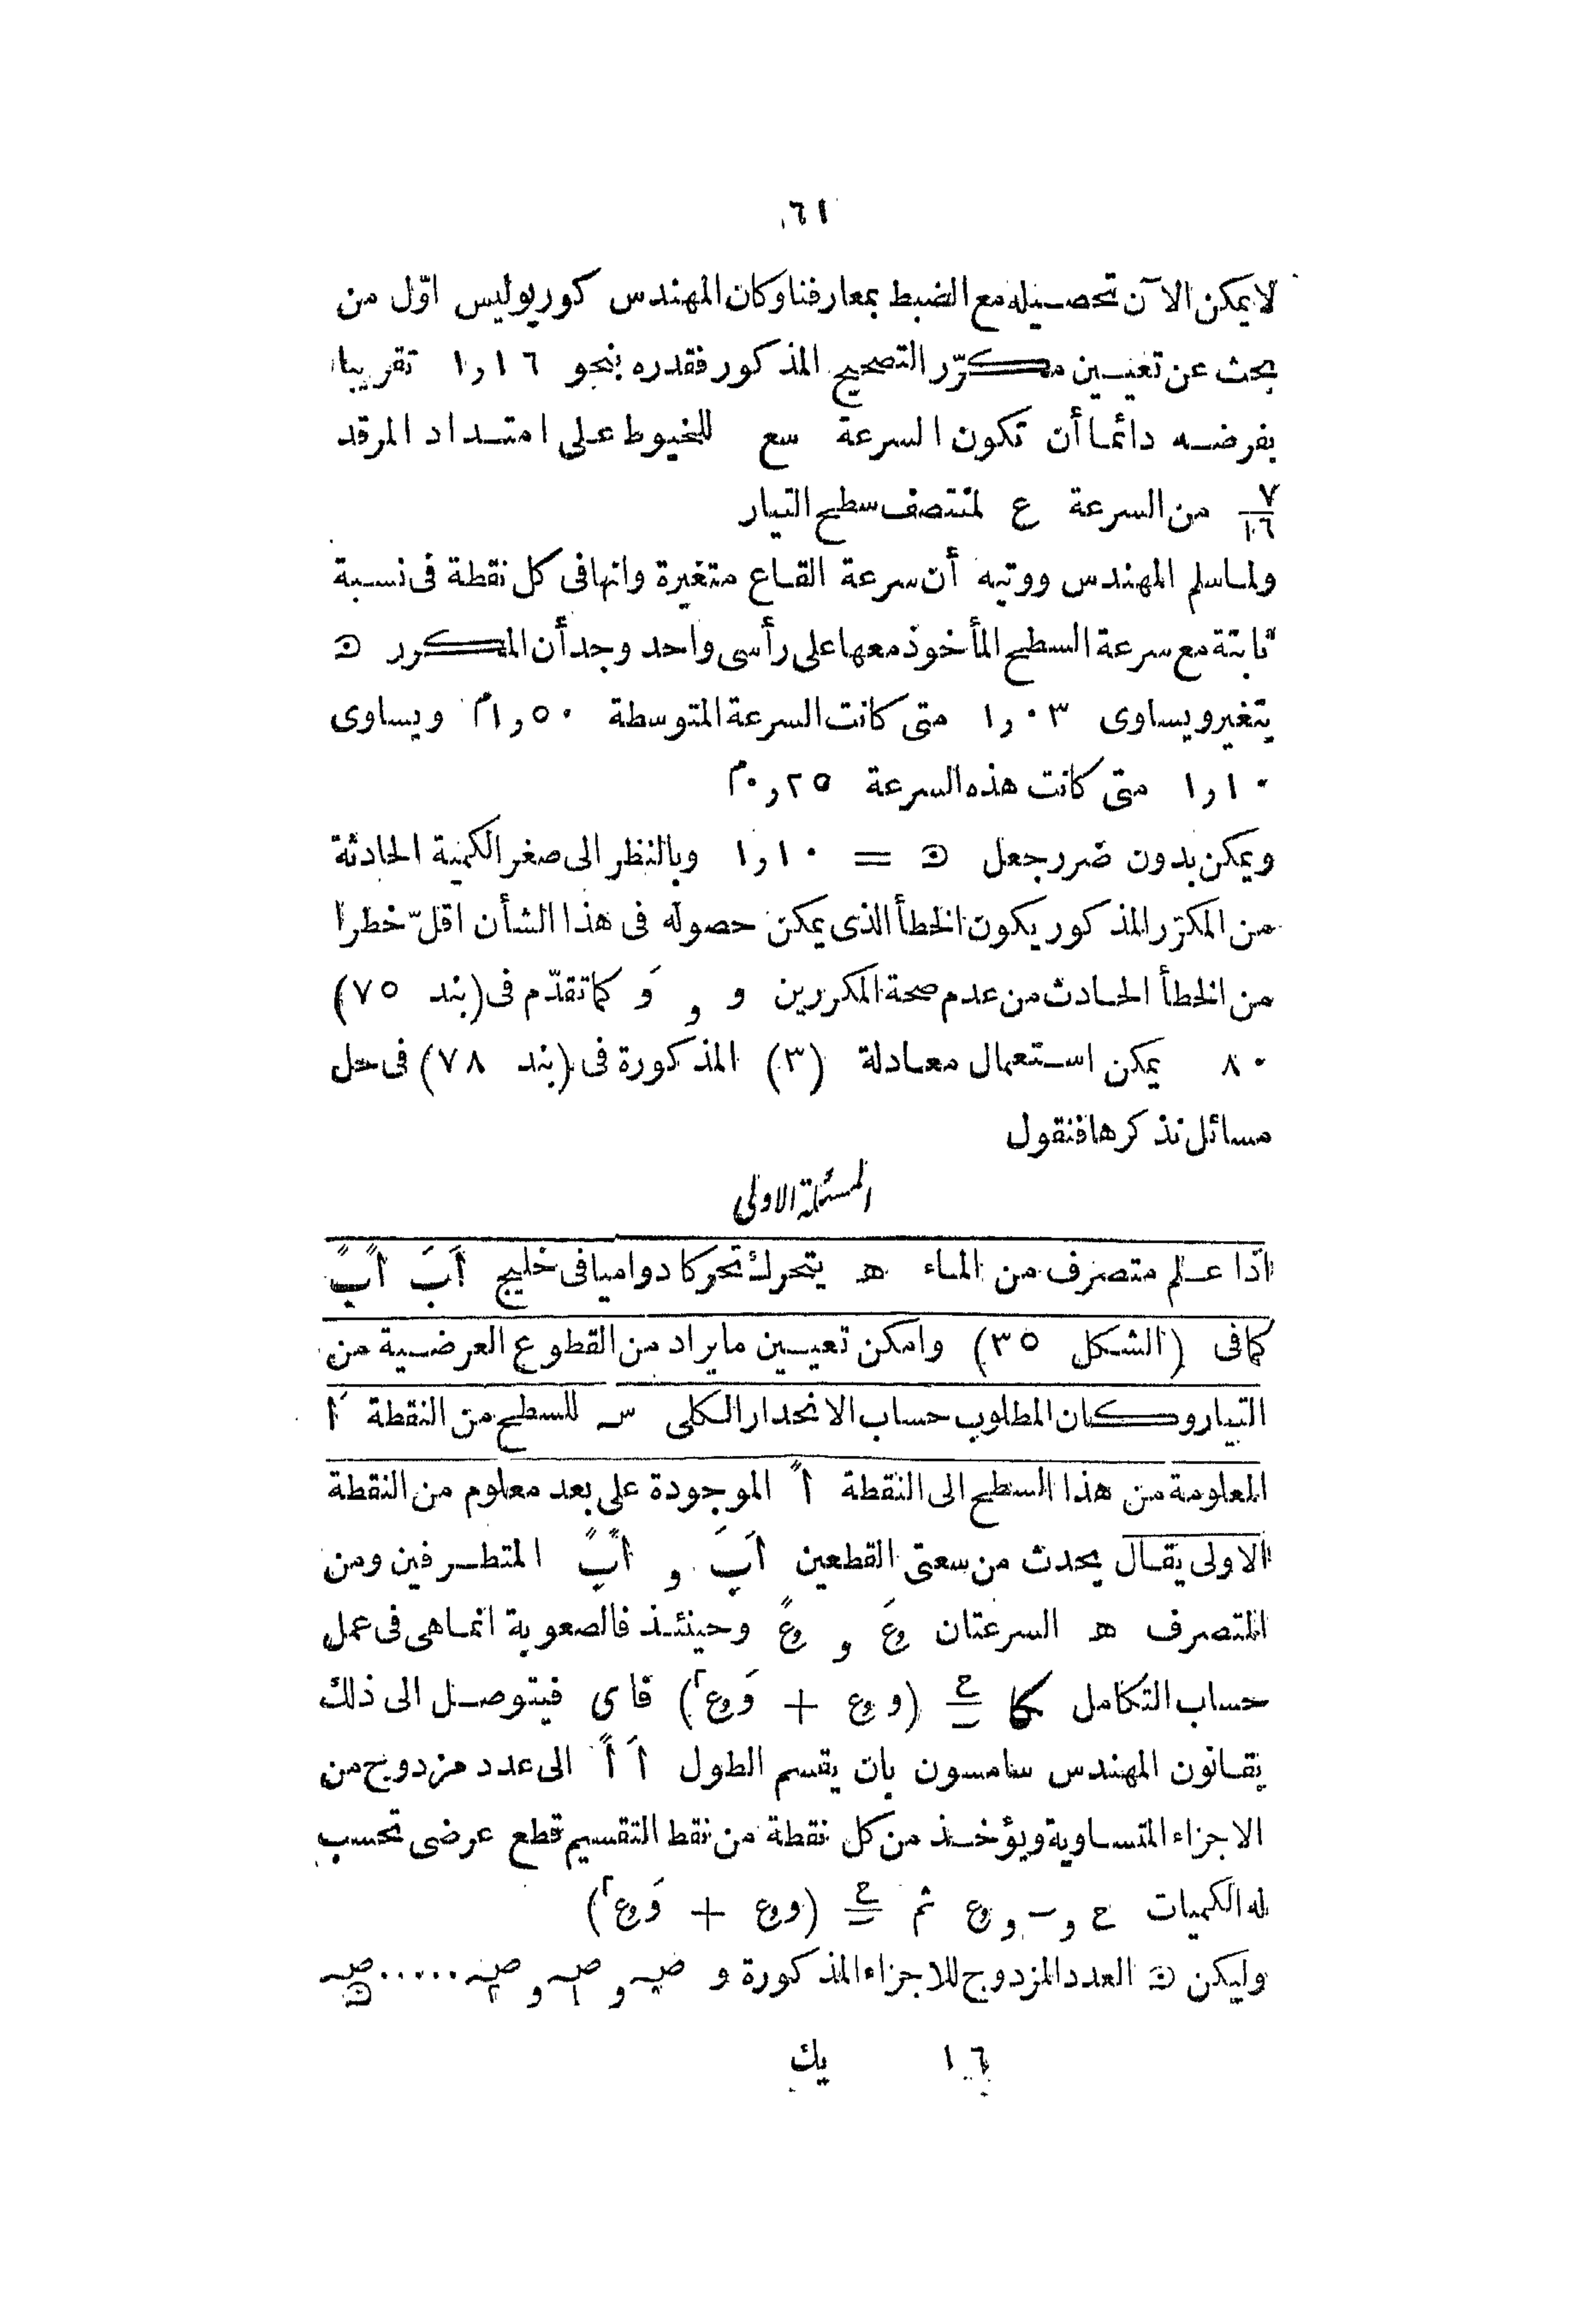 ٦١
لا يمكن الآن تحصيله مع الضبط بمعارفنا وكان المهندس كوريوليس اوّل من
بحث عن تعيين مكرّر التصحيح المذكور فقدره بنحو ١٦ر١ تقريبا
بفرضه دائما أن تكون السرعة سع للخيوط على امتداد المرقد
٧/١٦ من السرعة ع لمنتصف سطح التيار
ولما سلم المهندس ووتيه أن سرعة القاع متغيرة وانها فى كل نقطة فى نسبة
ثابتة مع سرعة السطح المأخوذ معها على رأسى واحد وجد أن المكرر ﻥ
يتغير ويساوى ٠٣ر١ متى كانت السرعة المتوسطة ٥٠ر١م ويساوى
١٠ر١ متى كانت هذه السرعة ٢٥ر٠م
ويمكن بدون ضرر جعل ﻥ = ١٠ر١ وبالنظر الى صغر الكمية الحادثة
من المكرّر المذكور يكون الخطأ الذى يمكن حصوله فى هذا الشأن اقلّ خطرا
من الخطأ الحادث من عدم صحة المكررين و و وَ كما تقدّم فى (بند ٧٥)
٨٠ يمكن استعمال معادلة (٣) المذكورة فى (بند ٧٨) فى حل
مسائل نذكرها فنقول
المسئلة الاولى
اذا علم متصرف من الماء ھ يتحرك تحركا دواميا فى خليج اَبَ اًبً
كما فى (الشكل ٣٥) وامكن تعيين ما يراد من القطوع العرضية من
التيار وكان المطلوب حساب الانحدار الكلى س للسطح من النقطة اَ
المعلومة من هذا السطح الى النقطة اً الموجودة على بعد معلوم من النقطة
الاولى يقال يحدث من سعتى القطعين اَبَ و اًبً المتطرفين ومن
المتصرف ھ السرعتان وعَ و وعً وحينئذ فالصعوبة انما هى فى عمل
حساب التكامل كا ح/س (و وع + وَ وع٢) فاى فيتوصل الى ذلك
بقانون المهندس سامسون بان يقسم الطول اَ اً الى عدد مزدوج من
الاجزاء المتساوية ويؤخذ من كل نقطة من نقط التقسيم قطع عرضى تحسب
له الكميات ح و س و وع ثم ح/س (و وع + وَ وع٢)
وليكن ﻥ العدد المزدوج للاجزاء المذكورة و صہ٠ و صہ١ و صہ٢ ..... صہﻥ
١٦ يك